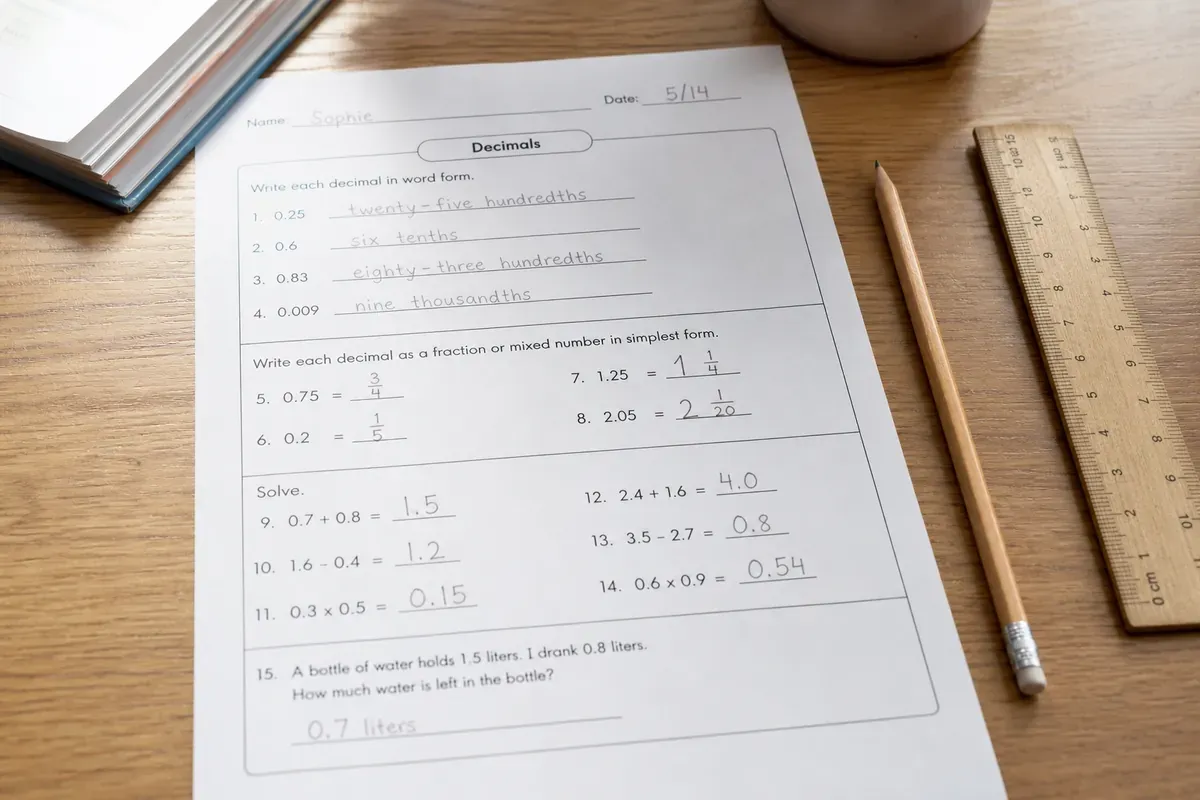 Name: Sophie Date: 5/14
Decimals
Write each decimal in word form.
1. 0.25 twenty-five hundredths
2. 0.6 six tenths
3. 0.83 eighty-three hundredths
4. 0.009 nine thousandths
Write each decimal as a fraction or mixed number in simplest form.
5. 0.75 = 3/4
6. 0.2 = 1/5
7. 1.25 = 1 1/4
8. 2.05 = 2 1/20
Solve.
9. 0.7 + 0.8 = 1.5
10. 1.6 - 0.4 = 1.2
11. 0.3 x 0.5 = 0.15
12. 2.4 + 1.6 = 4.0
13. 3.5 - 2.7 = 0.8
14. 0.6 x 0.9 = 0.54
15. A bottle of water holds 1.5 liters. I drank 0.8 liters.
How much water is left in the bottle?
0.7 liters
0 cm 1 2 3 4 5 6